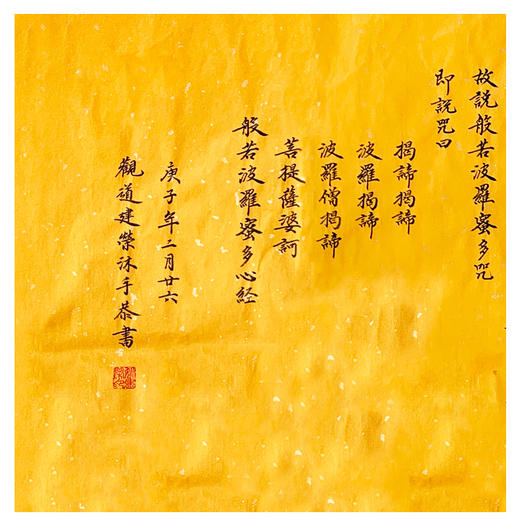 故說般若波羅蜜多咒
即說咒曰
揭諦揭諦
波羅揭諦
波羅僧揭諦
菩提薩婆訶
般若波羅蜜多心経
庚子年二月廿六
觀道建榮沐手恭書